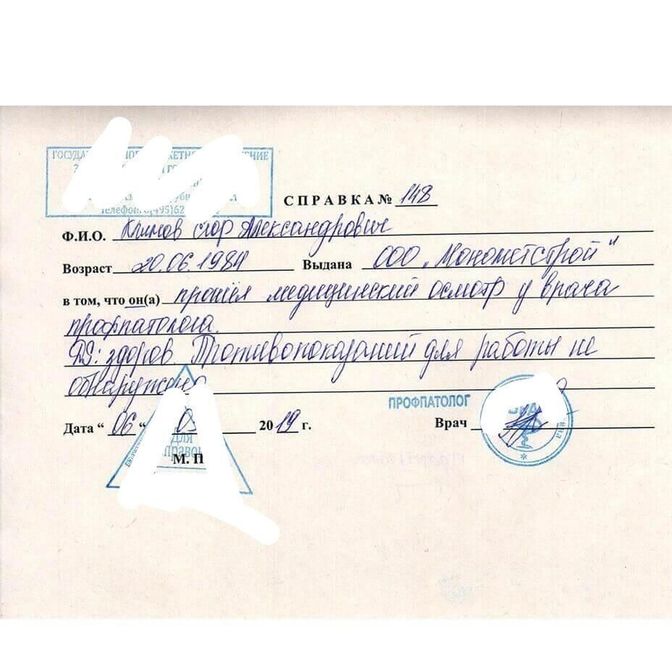 СПРАВКА № 148
Ф.И.О. Климов Егор Александрович
Возраст 20.06.1984 Выдана ООО „Монометстрой"
в том, что он(а) прошёл медицинский осмотр у врача
профпатолога.
DS: здоров Противопоказаний для работы не
обнаружено
ПРОФПАТОЛОГ
Дата “ 06 “ 2019 г. Врач
Для
М. П